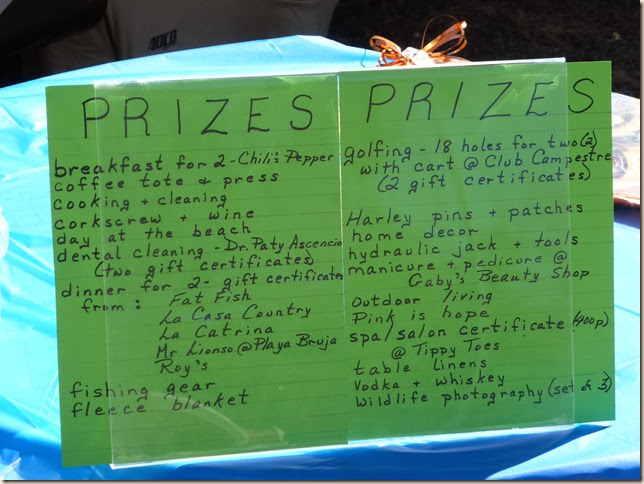 PRIZES
breakfast for 2 - Chili's Pepper
coffee tote + press
cooking + cleaning
corkscrew + wine
day at the beach
dental cleaning - Dr. Paty Ascencio
(two gift certificates)
dinner for 2 - gift certificates
from: Fat Fish
La Casa Country
La Catrina
Mr Lionso @ Playa Bruja
Roy's
fishing gear
fleece blanket
PRIZES
golfing - 18 holes for two (2)
with cart @ Club Campestre
(2 gift certificates)
Harley pins + patches
home decor
hydraulic jack + tools
manicure + pedicure @
Gaby's Beauty Shop
Outdoor living
Pink is hope
spa/salon certificate (400p)
@ Tippy Toes
table linens
Vodka + whiskey
Wildlife photography (set of 3)